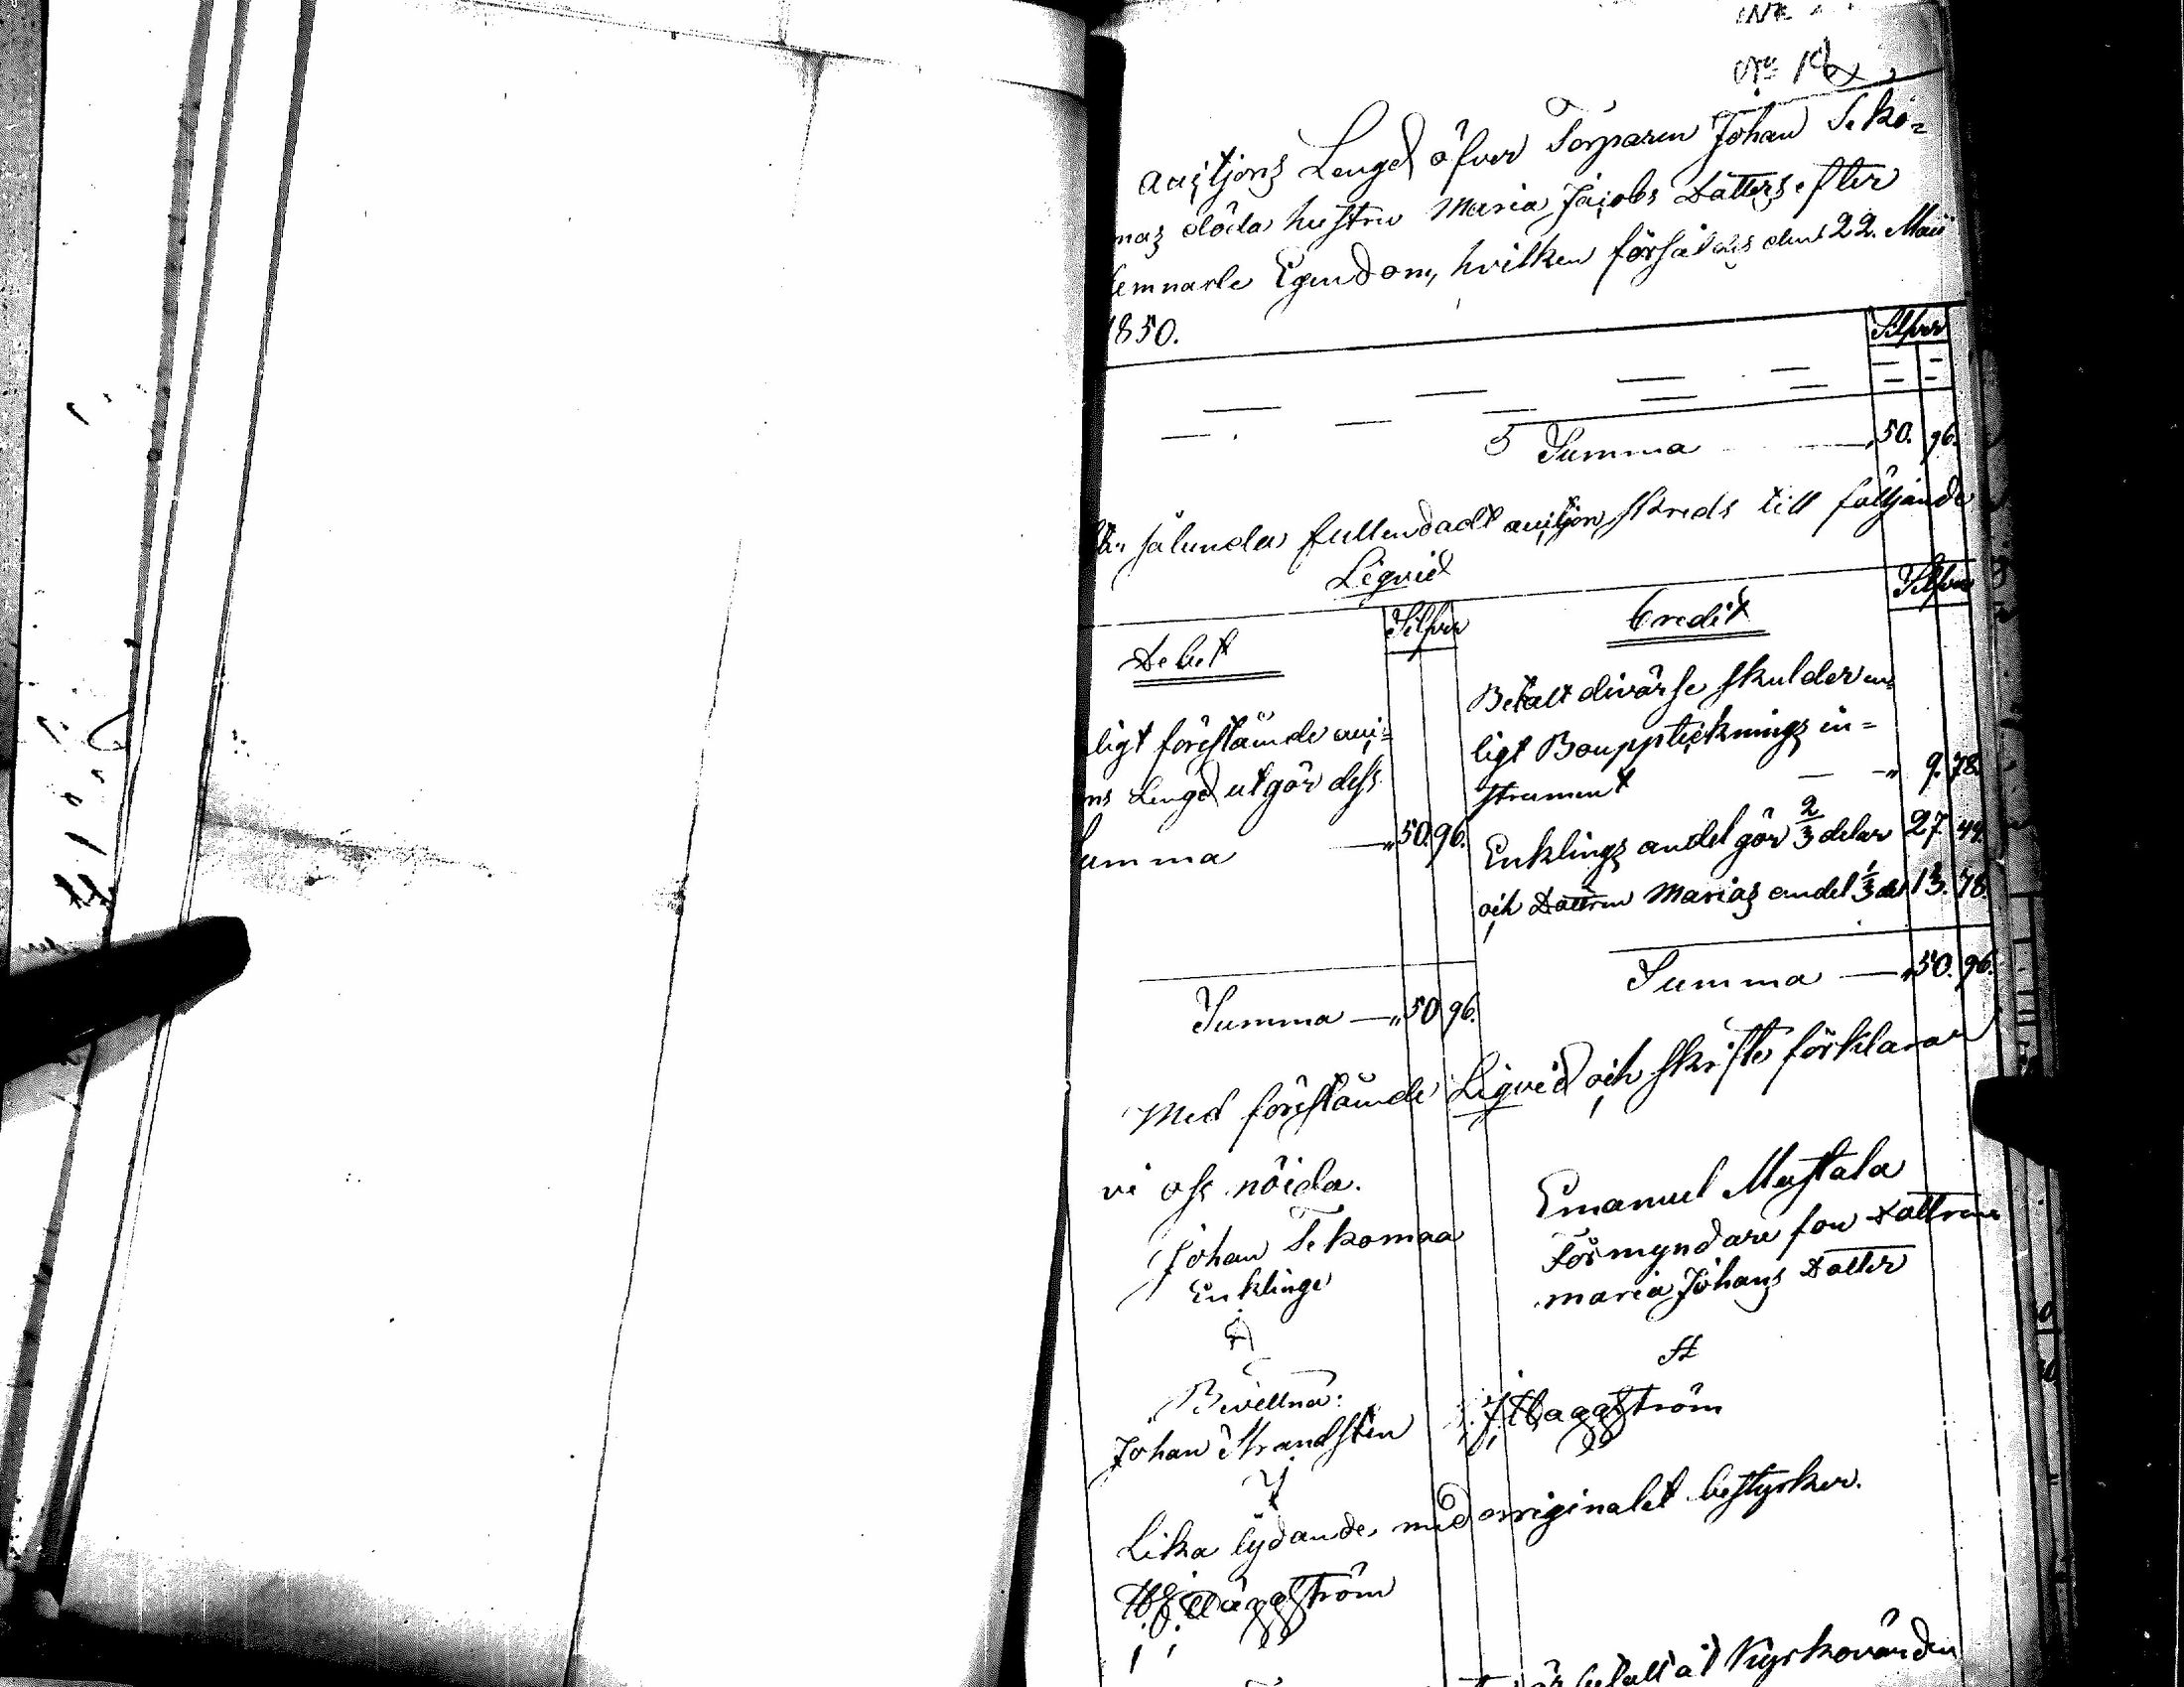 Auctjons Lengd öfver Torparen Johan Seko-
mas döda hustru Maria Jacobs Datters efter
lemnade Egendom, hvilken försåldes den 22. Maii
1850.
Silfver
Summa — 50. 96.
sålunda fullendadt auctjon, skreds till följande
Liqvid
Debet Silfver
ligt förestående auc-
ns Lengd utgör dess
umma — „ 50. 96.
Summa — „ 50 96.
Credit Silfver
Betalt divärse skulder en-
ligt Bouppteknings in-
strument — „ 9. 78.
Enklings andel gör 2/3 delar 27. 44.
och Dattren Marias andel 1/3 del 13. 78.
Summa — „ 50. 96.
Med förestående Liqvid och skifte förklarar
vi oss nöida.
Johan Sekomaa
Enklinge
Emanuel Mustala
Förmyndare for Dattren
Maria Johans Datter
Bevittna:
Johan Strandsten
J. Häggström
Lika lydande, med orriginalet bestyrker.
Häggström
betalt åt Kyrkovärden